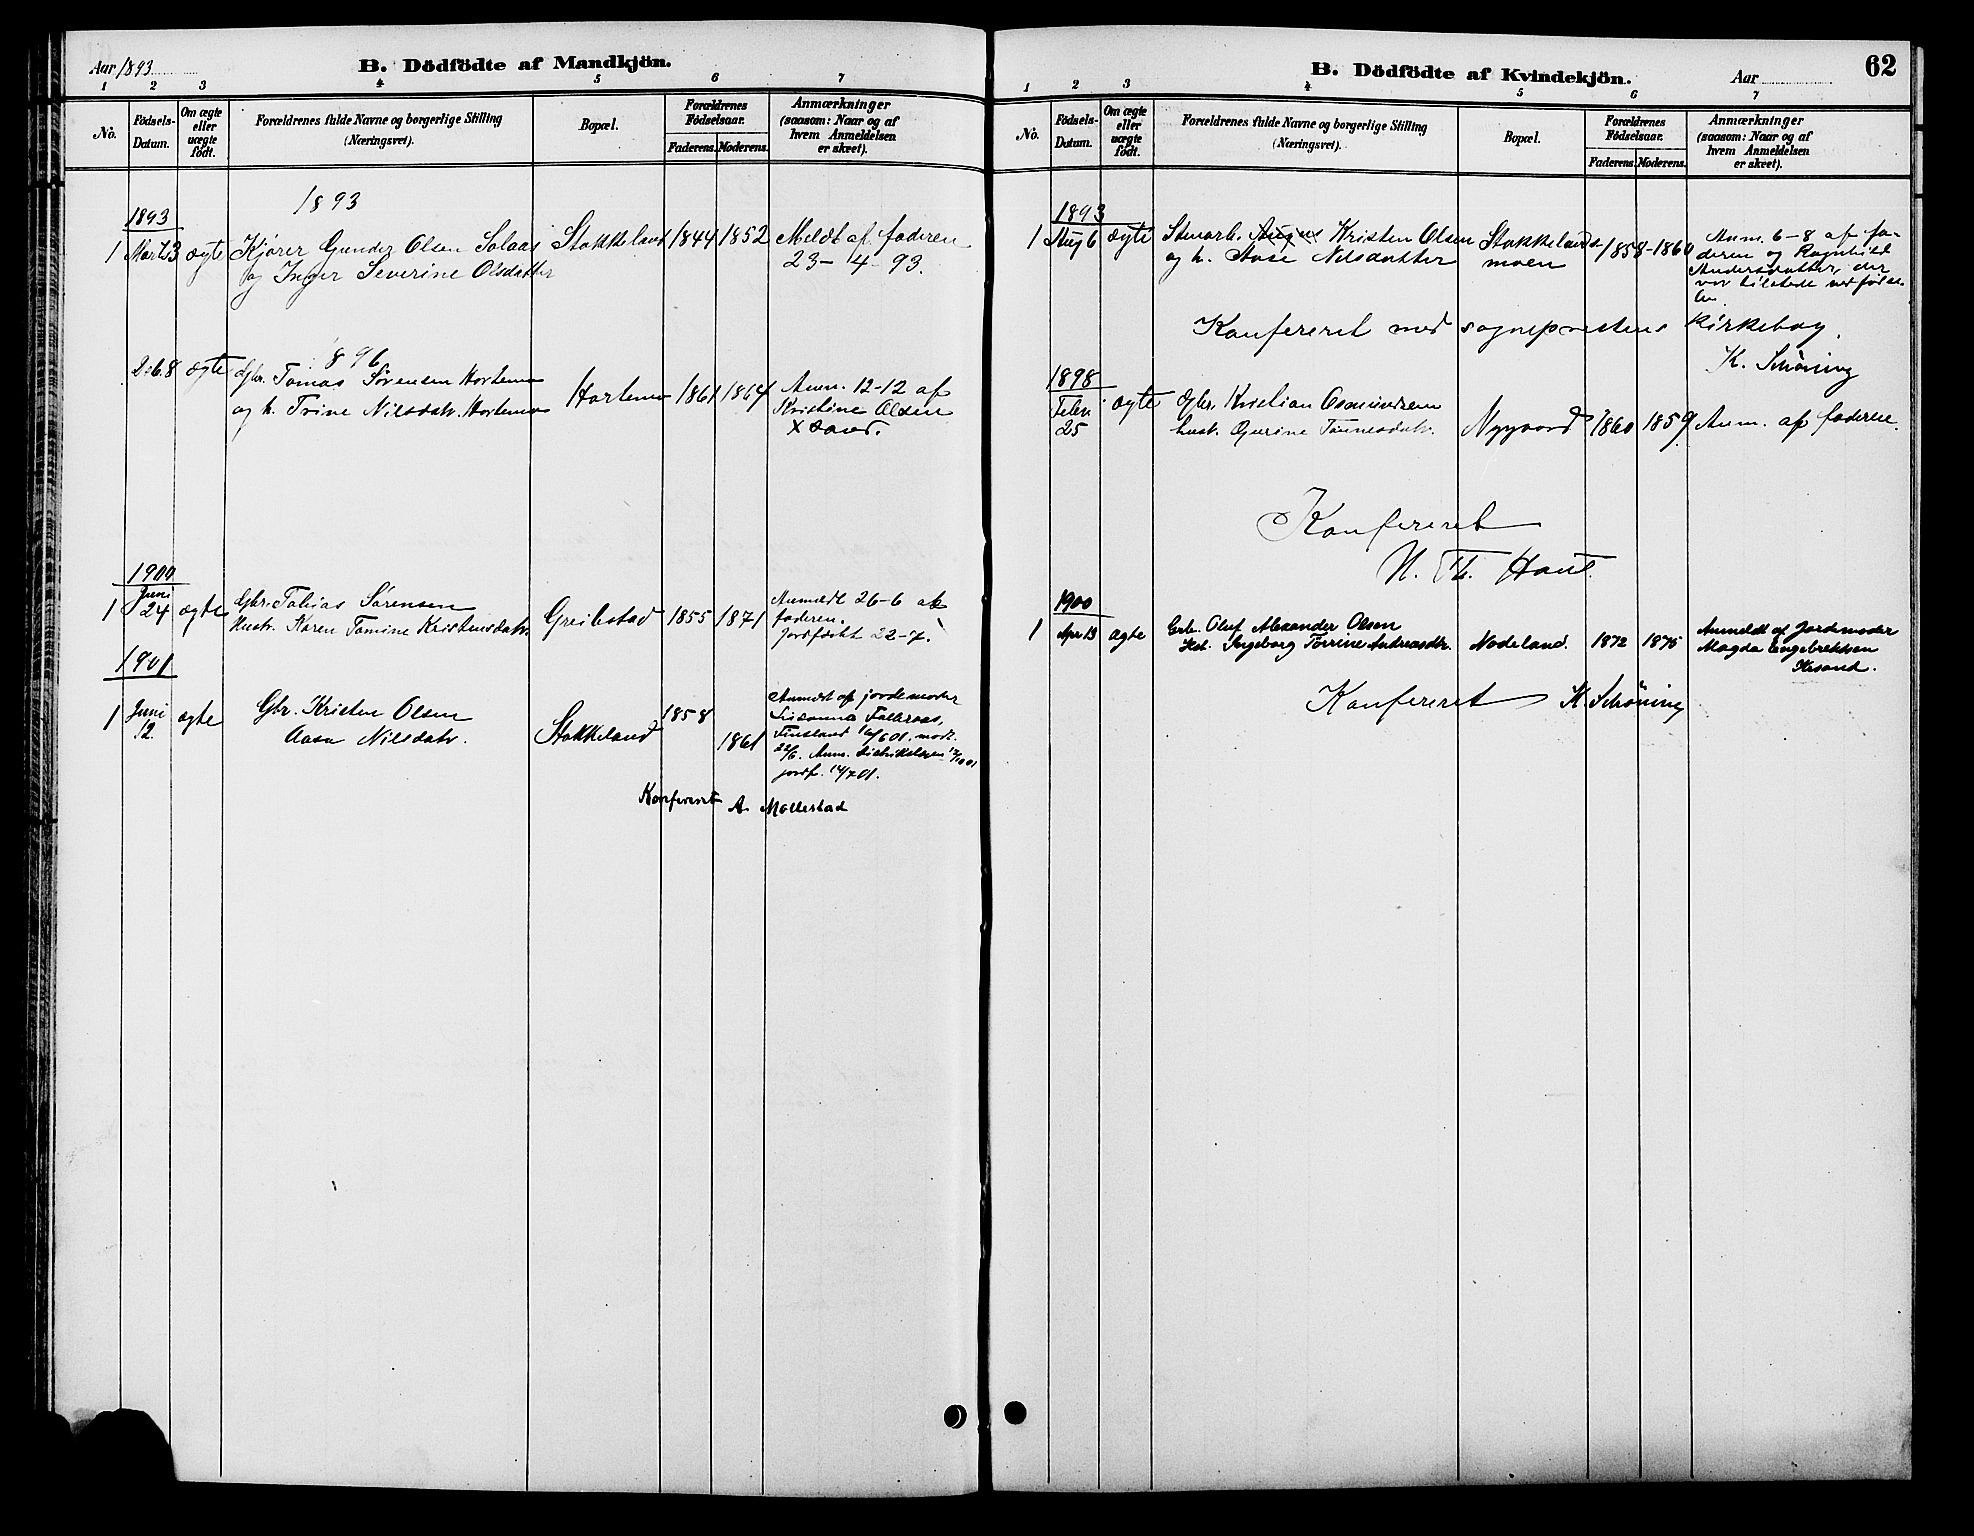 Aar 1893
B. Dödfödte af Mandkjön.
1 2 3 4 5 6 7
No.
Födsels-
Datum.
Om ægte
eller
uægte
født.
Forældrenes fulde Navne og borgerlige Stilling
(Næringsvei).
Bopæl.
Forældrenes
Födselsaar.
Faderens. Moderens.
Anmærkninger
(saasom: Naar og af
hvem Anmeldelsen
er skeet).
1893
1893
1 ægte Kjører Gunder Olsen Solaas Stokkeland 1844 1852 Meldt af faderen
og Inger Severine Olsdatter 23-4-93.
1896
ægte Gbr. Tomas Sørensen Hortemo Hortemo 1861 1864 Anm. 12-12 af
og h. Trine Nilsdatr. Hortemo Kristine Olsen
1900
1 Juni 24 ægte Gbr. Tobias Sørensen Greibstad 1855 1871 Anmeldt 26-6 af
Hustr. Karen Tomine Kristensdatr. faderen.
Jordfæstet 22-7.
1901
1 Juni 12 ægte Gbr. Kristen Olsen Stokkeland 1858 1861 Anmeldt af jordemoder
Aasa Nilsdatr.
Finsland
jordf. 14/7 01.
Konfereret A. Mollestad
B. Dödfödte af Kvindekjön.
Aar
62
1 2 3 4 5 6 7
No.
Födsels-
Datum.
Om ægte
eller
uægte
født.
Forældrenes fulde Navne og borgerlige Stilling
(Næringsvei).
Bopæl.
Forældrenes
Födselsaar.
Faderens. Moderens.
Anmærkninger
(saasom: Naar og af
hvem Anmeldelsen
er skeet).
1893
1 Aug 6 ægte Stenarb. Kristen Olsen Stokkelands- 1858 - 1860 Anm. 6-8 af fa-
og h. Aase Nilsdatter moen deren og Ragnhild
Andersdatter, der
var tilstede ved
Konfereret med sogneprestens kirkebog.
K. Schöning
1898
Febr. 25 ægte Gbr. Kristian Osmundsen Nygaard 1860 1859 Anm. af faderen.
hust. Gurine Tønnesdatr.
Konfereret
N. Th.
1900
1 Apr 13 ægte Grb. Oluf Alexander Olsen Nodeland. 1872 1875 Anmeldt af Jordmoder
Hst. Ingeborg Torrine Andreasdtr. Magda Engebrektsen
Krsand.
Konfereret K. Schöning